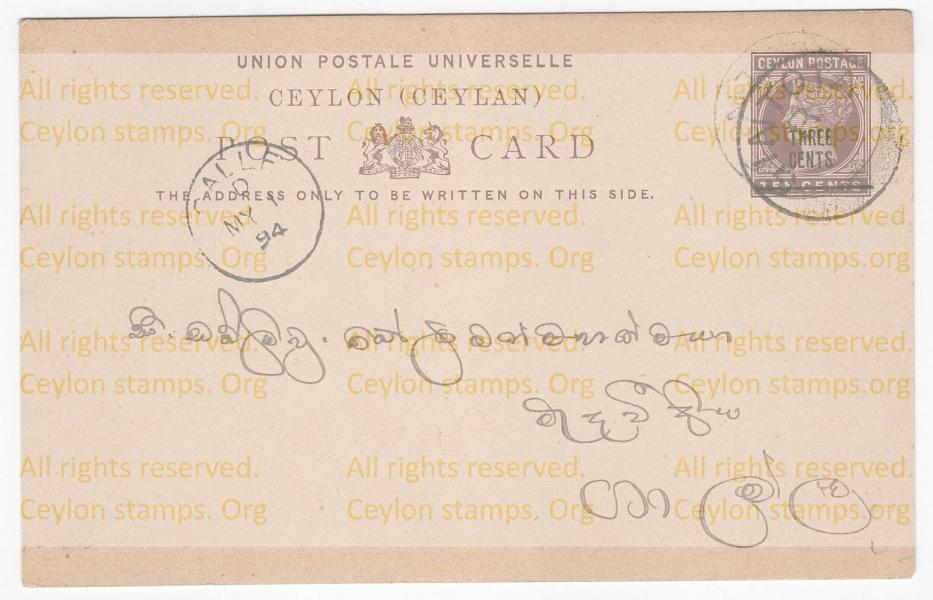 UNION POSTALE UNIVERSELLE
CEYLON (CEYLAN)
POST CARD
THE ADDRESS ONLY TO BE WRITTEN ON THIS SIDE.
CEYLON POSTAGE
THREE
CENTS
TEN CENTS
GALLE
D
MY 1
94
සී. ඩබ්ලිව්.
මහත්මයා
ගාල්ල
All rights reserved. All rights reserved. All rights reserved.
Ceylon stamps. Org Ceylon stamps. Org Ceylon stamps. Org
All rights reserved. All rights reserved. All rights reserved.
Ceylon stamps. Org Ceylon stamps. Org Ceylon stamps.org
All rights reserved. All rights reserved. All rights reserved.
Ceylon stamps. Org Ceylon stamps. Org Ceylon stamps. Org
All rights reserved. All rights reserved. All rights reserved.
Ceylon stamps. Org Ceylon stamps. Org Ceylon stamps. Org